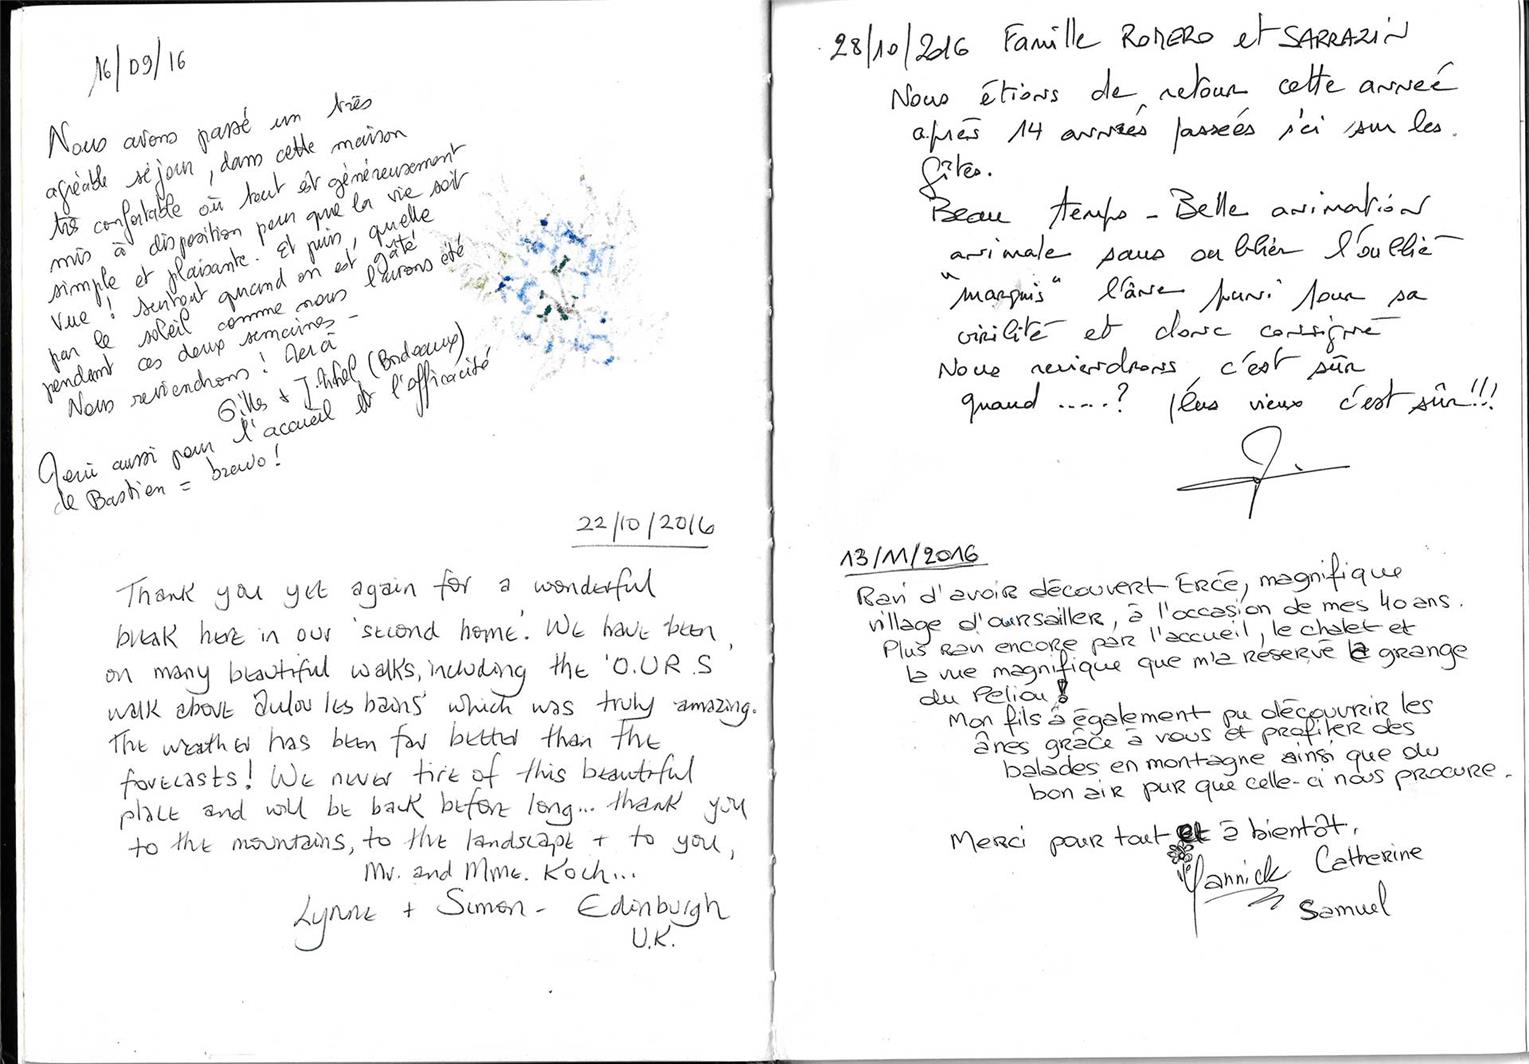 16/09/16
Nous avons passé un très
agréable séjour, dans cette maison
très confortable où tout est généreusement
mis à disposition pour que la vie soit
simple et plaisante. Et puis, quelle
vue ! surtout quand on est gâté
par le soleil comme nous l'avons été
pendant ces deux semaines -
Nous reviendrons !
Gilles + (Bordeaux)
aussi pour l'accueil et l'efficacité
de Bastien = bravo !
22/10/2016
Thank you yet again for a wonderful
break here in our 'second home'. We have been
on many beautiful walks, including the 'O.U.R.S
walk above Aulou les bains' which was truly amazing.
The weather has been far better than the
forecasts! We never tire of this beautiful
place and will be back before long... thank you
to the mountains, to the landscape + to you,
Mr. and Mme. Koch...
Lynne + Simon - Edinburgh
U.K.
28/10/2016 Famille ROMERO et SARRAZIN
Nous étions de retour cette anneé
après 14 années passeés ici sur les
Gîtes.
Beau temps - Belle animation
animale sans oublier l'oublié
"marquis" l'âne puni pour sa
virilité et donc consigné
Nous reviendrons c'est sûr
quand .....? Plus vieux c'est sûr!!!
13/11/2016
Ravi d'avoir découvert Ercé, magnifique
village d'oursailler, à l'occasion de mes 40 ans.
Plus ravi encore par l'accueil, le chalet et
la vue magnifique que m'a réservé la grange
du Peliou !
Mon fils à également pu découvrir les
ânes grâce à vous et profiter des
balades en montagne ainsi que du
bon air pur que celle-ci nous procure.
Merci pour tout et à bientôt.
Yannick Catherine
Samuel